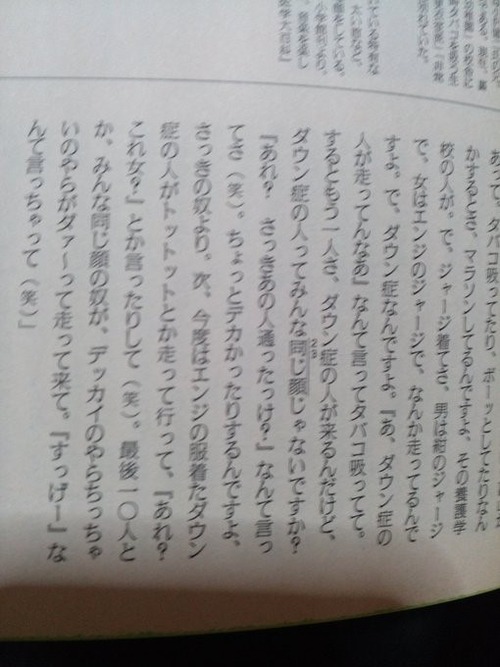 あって、タバコ吸ってたり、ボーッとしてたりなん
かするとさ、マラソンしてるんですよ、その養護学
校の人が。で、ジャージ着てさ、男は紺のジャージ
で、女はエンジのジャージで、なんか走ってるんで
すよ。で、ダウン症なんですよ。『あ、ダウン症の
人が走ってんなあ』なんて言ってタバコ吸ってて。
するともう一人さ、ダウン症の人が来るんだけど、
ダウン症の人ってみんな同じ顔じゃないですか？
23
『あれ？　さっきあの人通ったっけ？』なんて言っ
てさ（笑）。ちょっとデカかったりするんですよ、
さっきの奴より。次、今度はエンジの服着たダウン
症の人がトットットとか走って行って、『あれ？
これ女？』とか言ったりして（笑）。最後一〇人と
か、みんな同じ顔の奴が、デッカイのやらちっちゃ
いのやらがダァ〜って走って来て。『すっげー』な
んて言っちゃって（笑）」